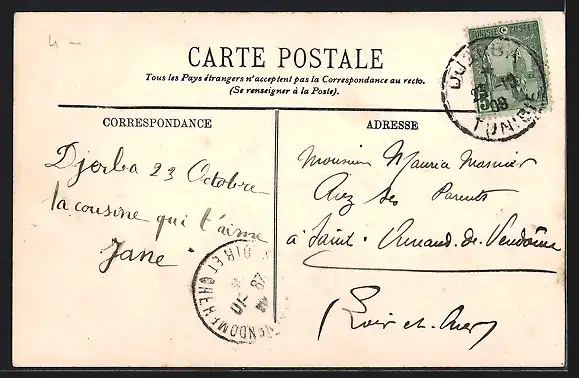 4 -
CARTE POSTALE
Tous les Pays étrangers n'acceptent pas la Correspondance au recto.
(Se renseigner à la Poste).
CORRESPONDANCE
Djerba 23 Octobre
la cousine qui t'aime
Jane
ADRESSE
Monsieur Maurice
Chez ses Parents
à Saint-Amand-de-Vendôme
(Loir-et-Cher)
TUNISIE POSTES
5
DJERBA
08
TUNISIE
LOIR ET CHER